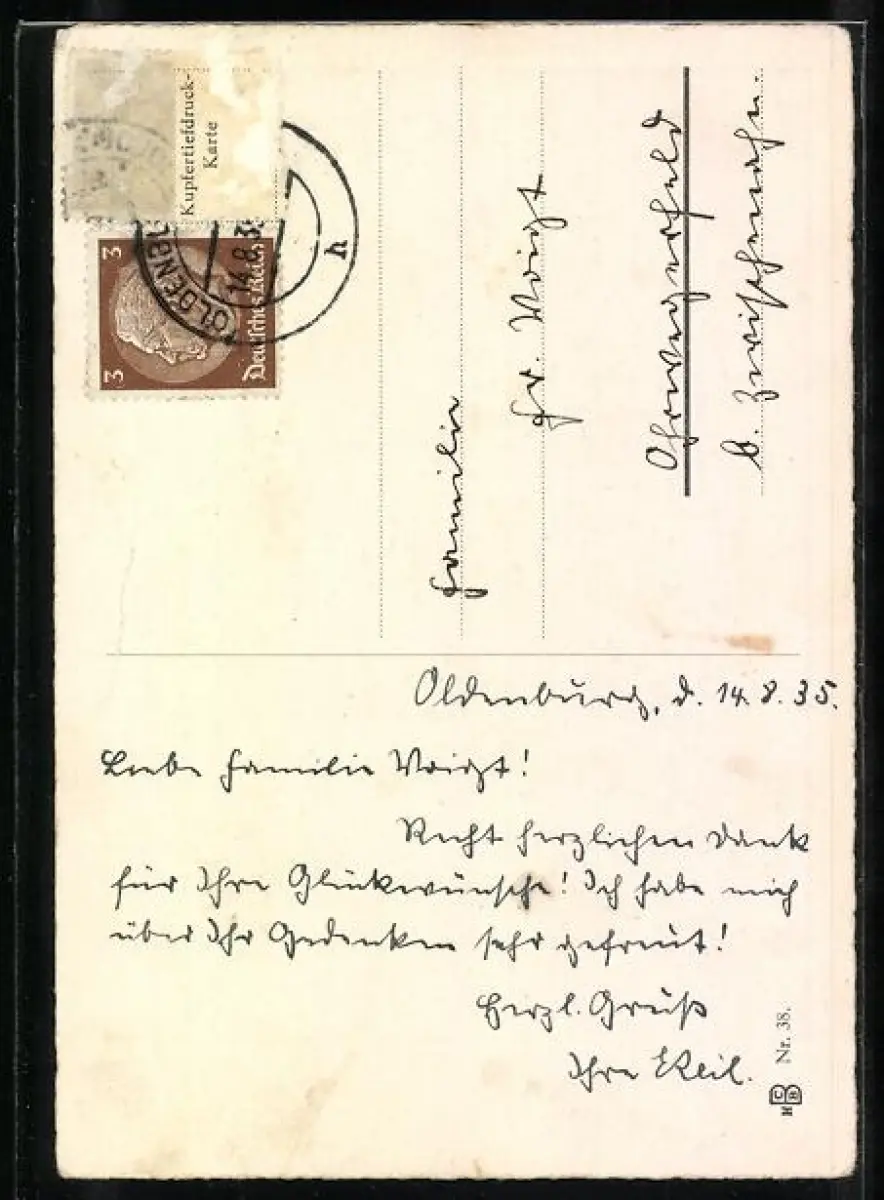 Kupfertiefdruck-
Karte
3
3
Deutsches Reich
OLDENBU
14.8.35
h
Familie
Fr. Voigt
Ohrwegerfeld
b. Zwischenahn.
Oldenburg, d. 14.8.35.
Liebe Familie Voigt!
Recht herzlichen Dank
für Ihre Glückwünsche! Ich habe mich
über Ihr Gedenken sehr gefreut!
Herzl. Gruß
Ihre
Nr. 38.